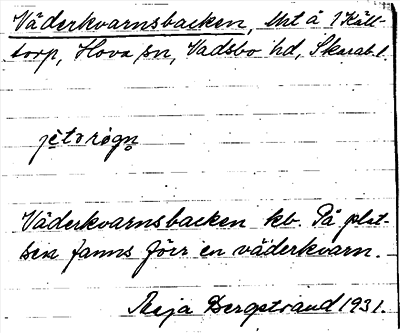 Väderkvarnsbacken, tht å 1 Käll-
torp, Hova sn, Vadsbo hd, Skarab. l.
Väderkvarnsbacken kb. På plat-
sen fanns förr en väderkvarn.
Bergstrand 1931.